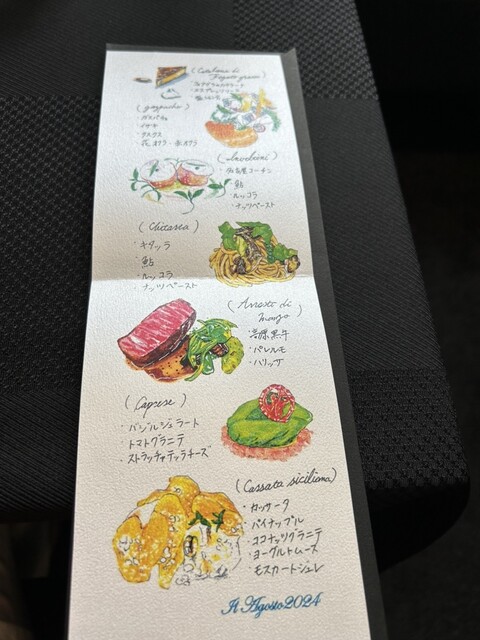 (Catalana di
Fegato grasso)
(gazpacho)
・ガスパチョ
・イサキ
・クスクス
・花オクラ・水オクラ
(involtini)
・名古屋コーチン
・鮎
・ルッコラ
・ナッツペースト
(Chitarra)
・キタッラ
・鮎
・ルッコラ
・ナッツペースト
(Arrosto di
manzo)
・黒牛
・パレルモ
・ハリッサ
(Caprese)
・バジルジェラート
・トマトグラニテ
・ストラッチャテッラチーズ
(Cassata siciliana)
・カッサータ
・パイナップル
・ココナッツグラニテ
・ヨーグルトムース
・モスカートジュレ
Il Agosto 2024